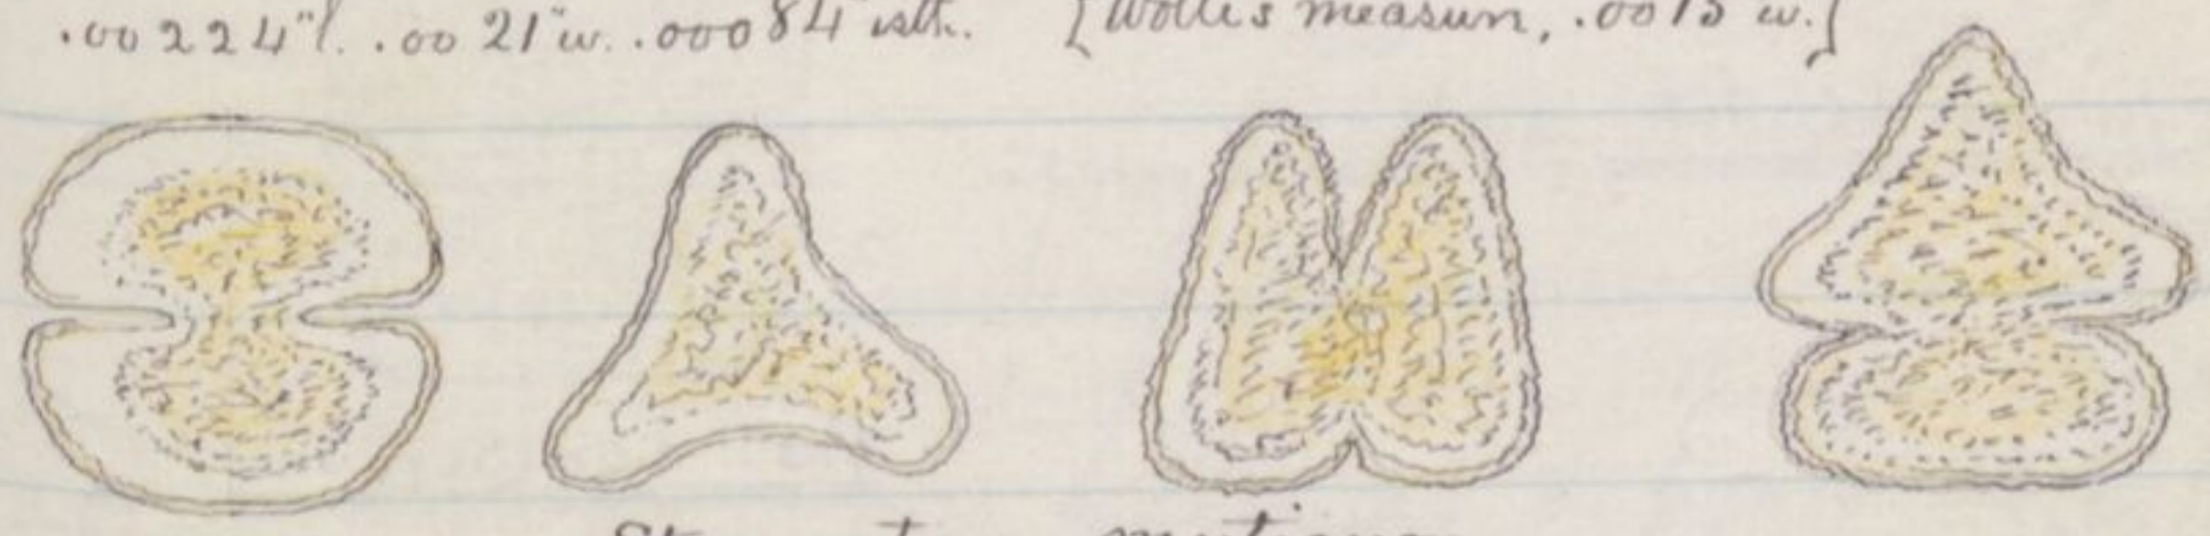 .00224"l. .0021"w. .00084"isth. [Wolle's measurm, .0015 w.]